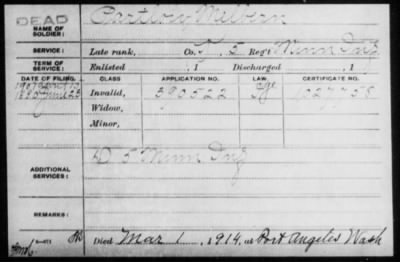 DEAD
NAME OF SOLDIER: Cartlow Milbern
SERVICE: Late rank, Co. I, 5 Reg't Minn Inf
TERM OF SERVICE: Enlisted , 1 Discharged , 1
DATE OF FILING. CLASS APPLICATION NO. LAW CERTIFICATE NO.
1907
1880 June 23 Invalid, 390522 Age
Widow,
Minor,
ADDITIONAL SERVICES: D 5 Minn Inf
REMARKS:
Died Mar 1, 1914, at Port Angeles Wash